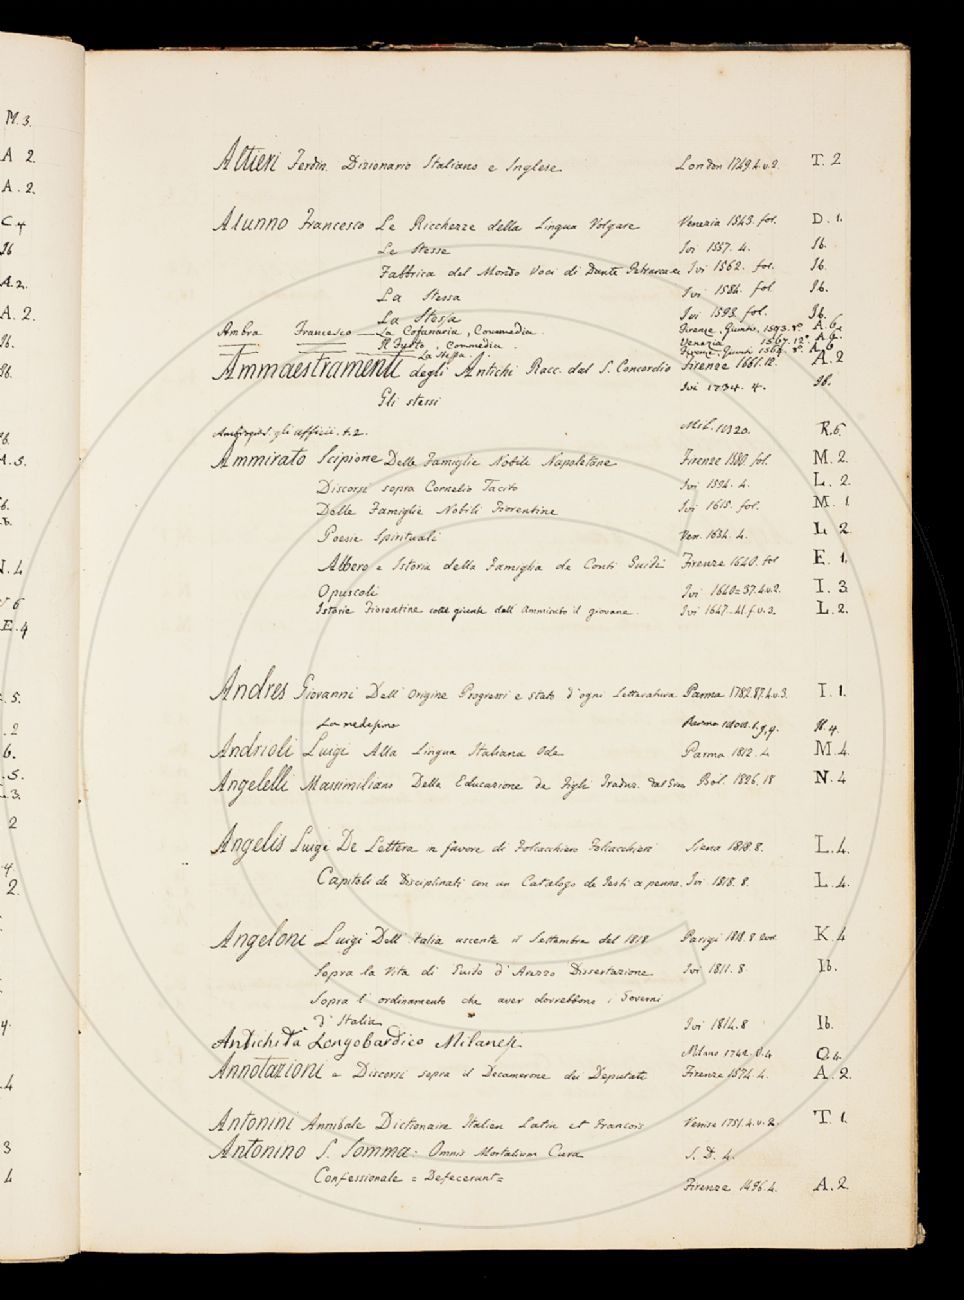 M. 3.
A 2.
A. 2.
C. 4
Ib
A. 2.
A. 2.
Ib.
Ib.
A. 5.
N. 4
E. 4
5.
2
6.
5.
3.
2
4
2.
4.
4
3
4
Altieri Ferdin. Dizionario Italiano e Inglese London 1749. 4. v. 2. T. 2
Alunno Francesco Le Ricchezze della Lingua Volgare Venezia 1543. fol. D. 1.
Le Stesse Ivi 1557. 4. Ib.
Fabbrica del Mondo Voci di Dante Petrarca ec Ivi 1562. fol. Ib.
La Stessa Ivi 1584. fol. Ib.
La Stessa Ivi 1593. fol. Ib.
Ambra Francesco La Cofanaria, Commedia. Firenze, Giunti, 1593. 8º A. 6.
Il Furto, Commedia. Venezia 1567. 12º A. 6.
La Stessa. Firenze, Giunti 1564. 8º A. 6
Ammaestramenti degli Antichi Racc. dal S. Concordio Firenze 1661. 12. A. 2
Gli stessi Ivi 1734. 4. Ib.
gli uffici. t. 2. Mil. R. 6.
Ammirato Scipione Delle Famiglie Nobili Napoletane Firenze 1580. fol. M. 2.
Discorsi sopra Cornelio Tacito Ivi 1594. 4. L. 2.
Delle Famiglie Nobili Fiorentine Ivi 1615. fol. M. 1
Poesie Spirituali Ven. 1634. 4. L 2.
Albero e Istoria della Famiglia de Conti Guidi Firenze 1640. fol E. 1.
Opuscoli Ivi 1640=37. 4. v. 2. I. 3
Istorie Fiorentine colle giunte dell' Ammirato il giovane. Ivi 1647-41. f. v. 3. L. 2.
Andres Giovanni Dell' Origine Progressi e stato d'ogni Letteratura Parma 1782. 87. 4. v. 3. I. 1.
La medesima Parma
Andrioli Luigi Alla Lingua Italiana Ode Parma 1812. 4 M. 4.
Angelelli Massimiliano Della Educazione de Figli Traduz. Bol. 1826. 18 N. 4
Angelis Luigi De Lettera in favore di Folcacchiero Folcacchieri Siena 1818. 8. L. 4.
Capitoli de Disciplinati con un Catalogo de Testi a penna. Ivi 1818. 8. L. 4.
Angeloni Luigi Dell' Italia uscente il Settembre del 1818 Parigi 1818. 8 K. 4
Sopra la Vita di Guido d'Arezzo Dissertazione Ivi 1811. 8 Ib.
Sopra l'ordinamento che aver dovrebbono i Governi
d'Italia Ivi 1814. 8 Ib.
Antichità Longobardico Milanesi. Milano O. 4.
Annotazioni e Discorsi sopra il Decamerone dei Deputati Firenze 1574. 4. A. 2.
Antonini Annibale Dictionaire Italien Latin et Francois Venise 1751. 4. v. 2. T. 1.
Antonino S. Somma: Omnis Mortalium Cura S. D. 4.
Confessionale = Defecerunt = Firenze 1496. 4. A. 2.